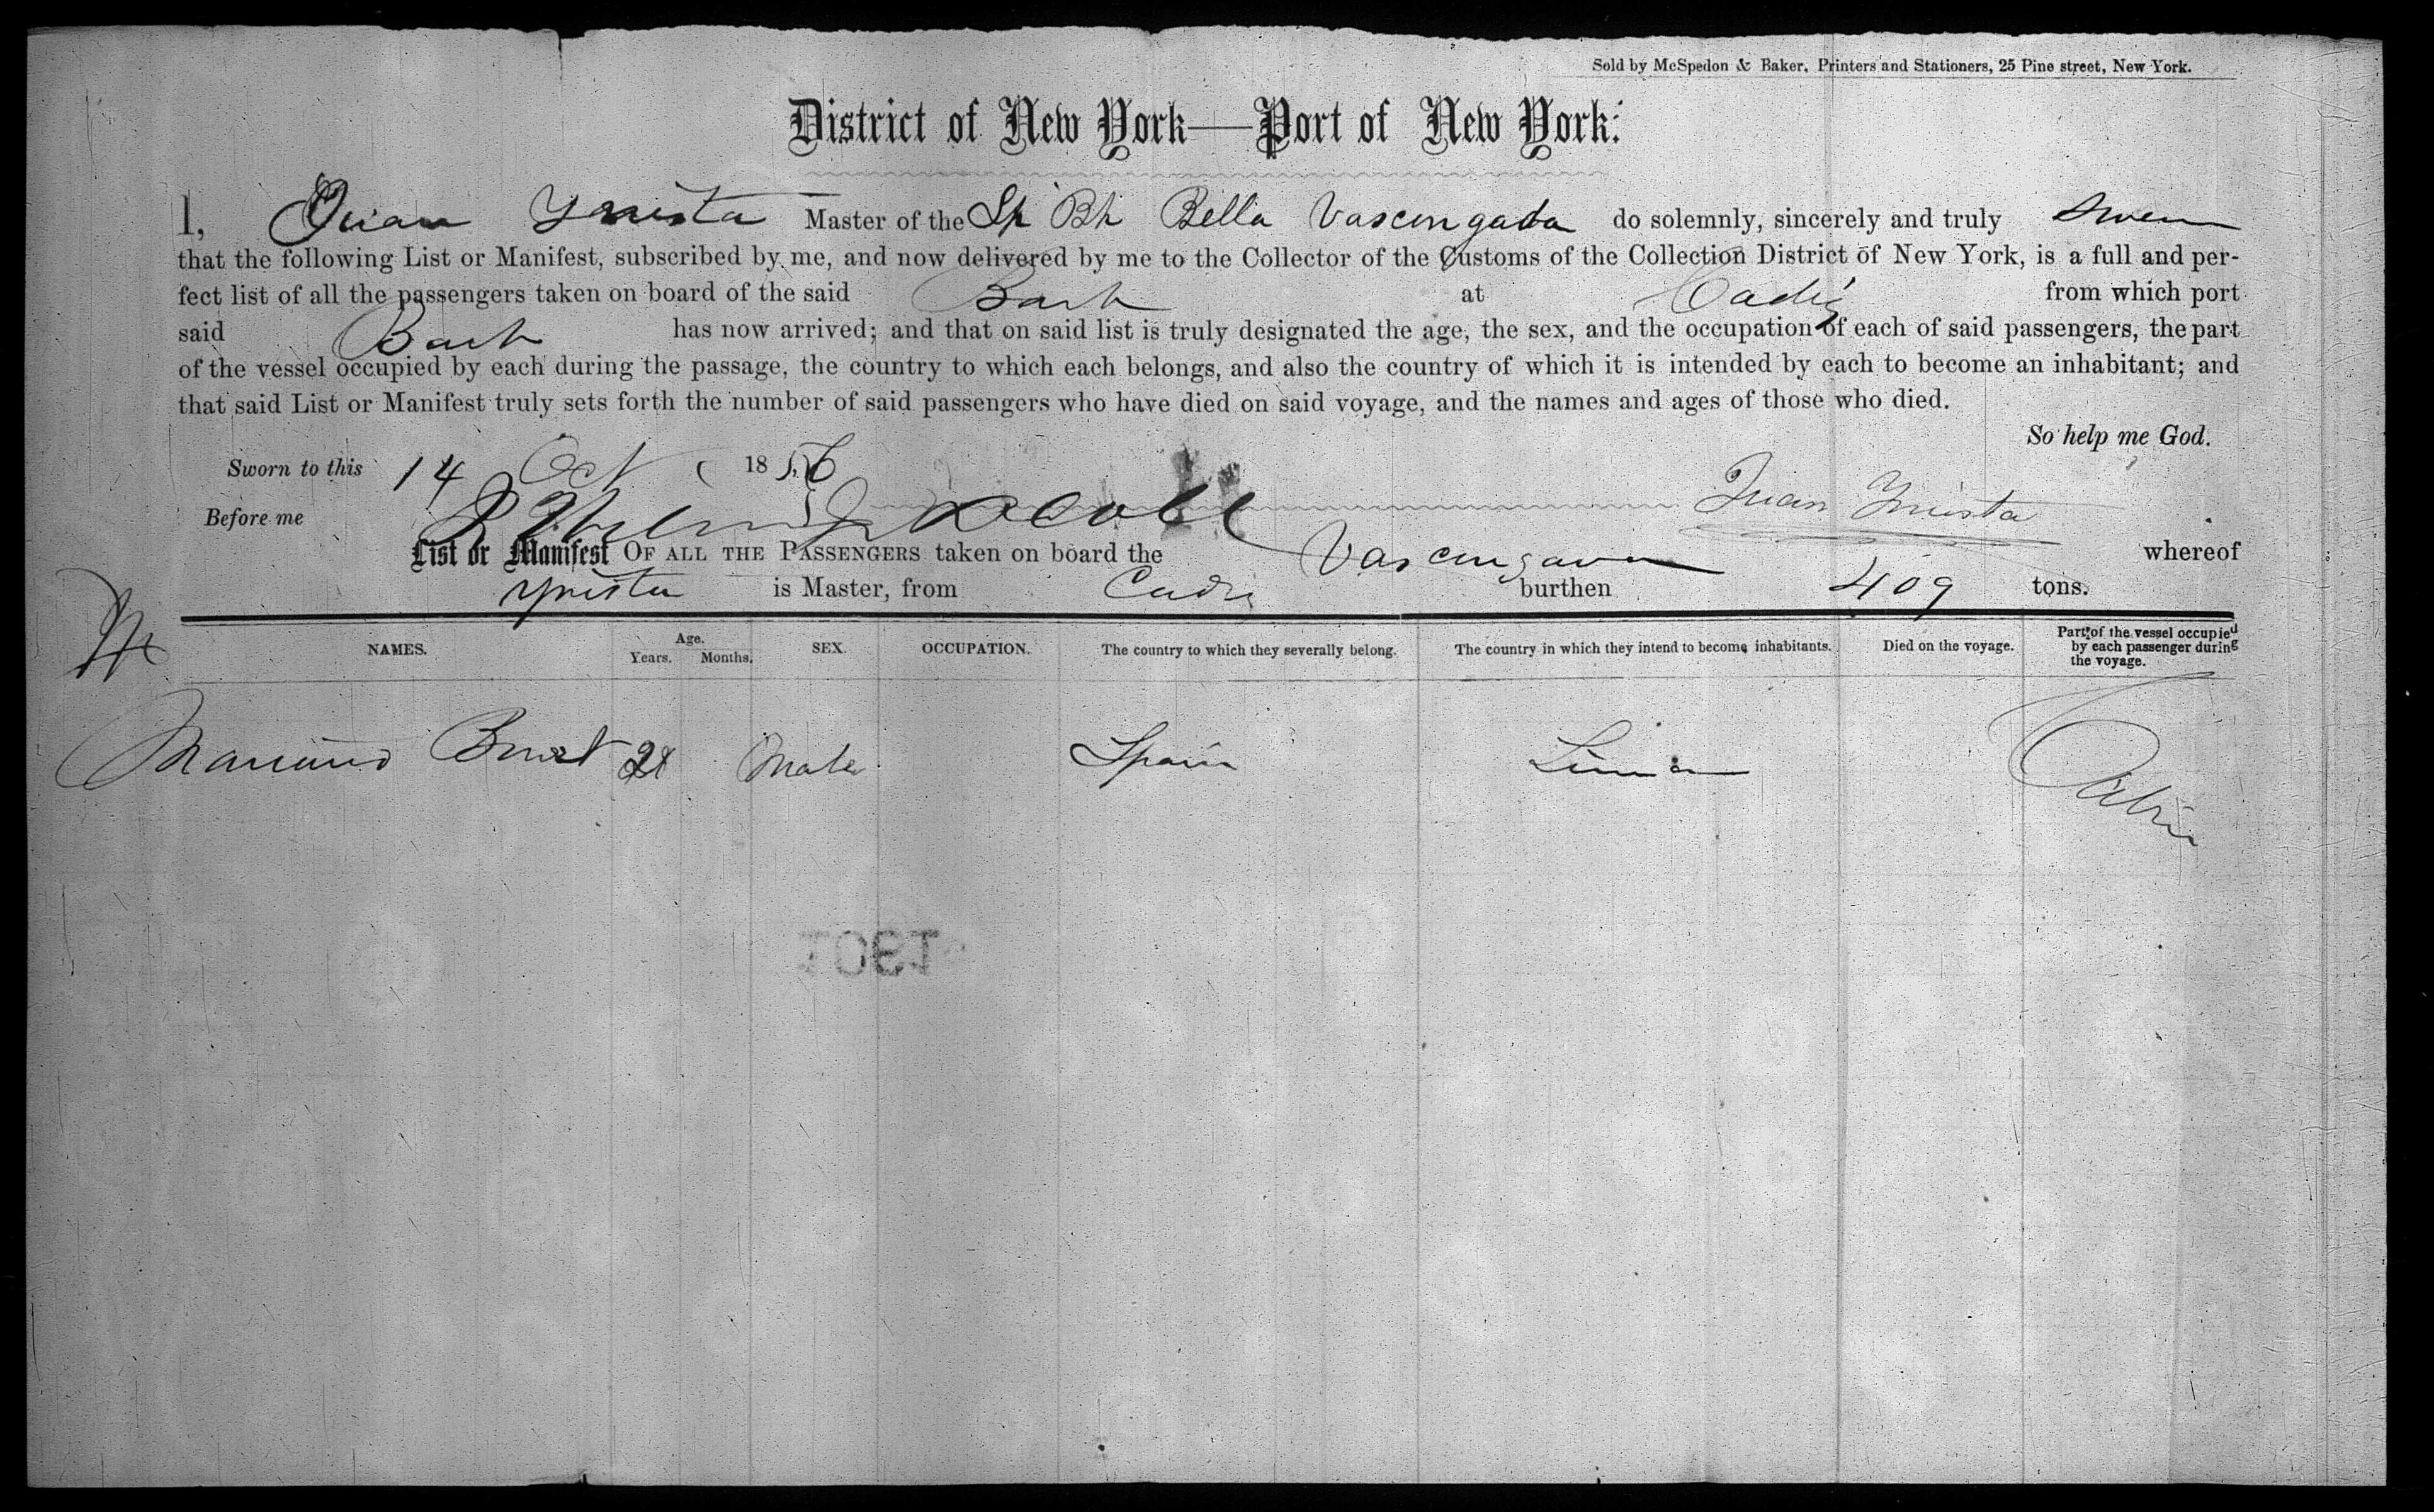 Sold by McSpedon & Baker, Printers and Stationers, 25 Pine street, New York.
District of New York—Port of New York:
I, Juan Ynista Master of the Sp Bk Bella Vascongada do solemnly, sincerely and truly swear
that the following List or Manifest, subscribed by me, and now delivered by me to the Collector of the Customs of the Collection District of New York, is a full and per-
fect list of all the passengers taken on board of the said Bark at Cadiz from which port
said Bark has now arrived; and that on said list is truly designated the age, the sex, and the occupation of each of said passengers, the part
of the vessel occupied by each during the passage, the country to which each belongs, and also the country of which it is intended by each to become an inhabitant; and
that said List or Manifest truly sets forth the number of said passengers who have died on said voyage, and the names and ages of those who died.
So help me God.
Sworn to this 14 Oct 1856
Before me Juan Ynista
List or Manifest OF ALL THE PASSENGERS taken on board the Vascongada whereof
Ynista is Master, from Cadiz burthen 409 tons.
NAMES. Age. Years. Months. SEX. OCCUPATION. The country to which they severally belong. The country in which they intend to become inhabitants. Died on the voyage. Part of the vessel occupied by each passenger during the voyage.
Mariano Male Spain Cabin
1061